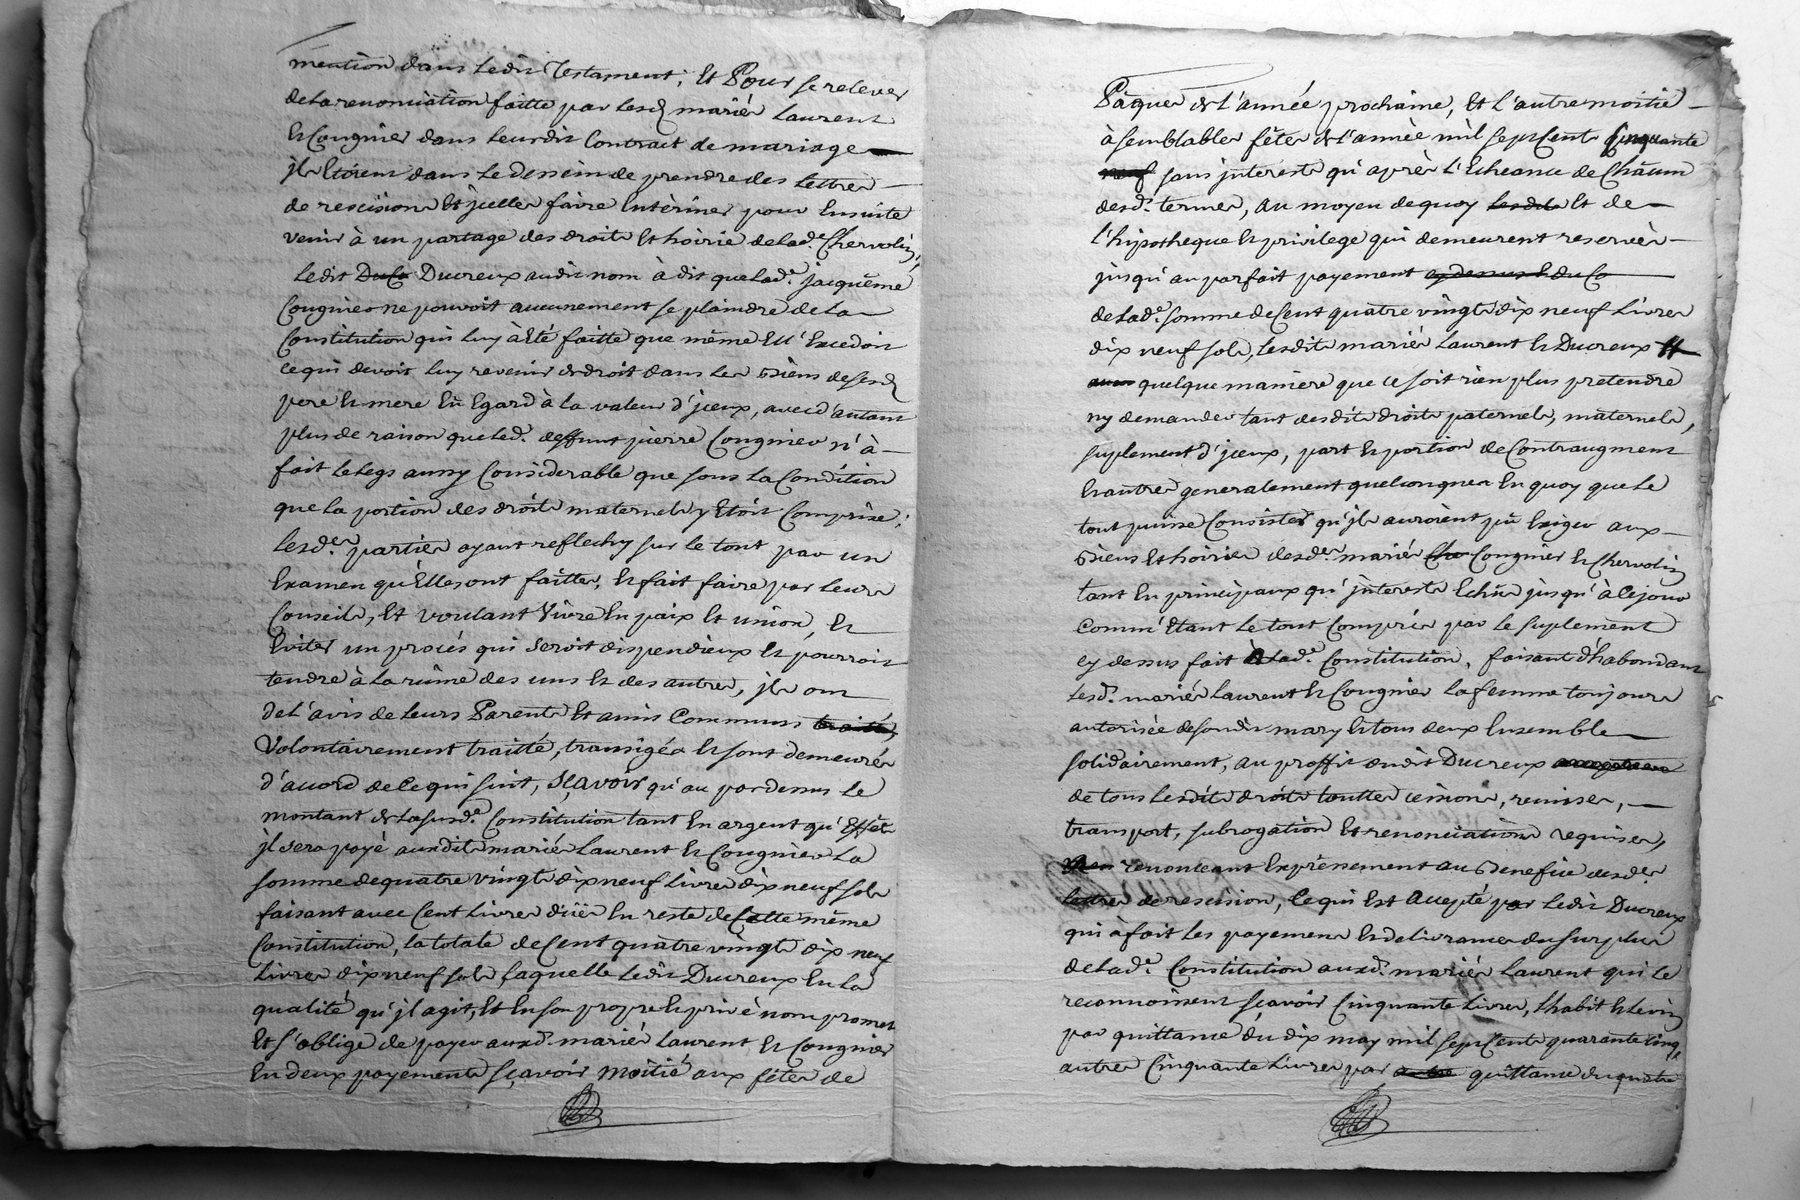 mention dans ledit Testament; Et Pour se relever
de la renonciation faitte par lesd mariés Laurent
et Cougnier dans leurdit Contract de mariage
jls Etoient dans le dessein de prendre des lettres
de rescision Et jcelles faire Enteriner pour Ensuite
venir à un partage des droits et hoirie de lad.e Chervolin,
ledit Ducreux audit nom à dit que lad.e jacquême
Cougnier ne pouvoit aucunement se plaindre de la
Constitution qui luy à Eté faitte que même Ell' Excedoit
ce qui devoit luy revenir de droit dans les biens de sesd
pere et mere Eû Egard à la valeur d'jceux, avec d'autant
plus de raison que led. deffunt pierre Cougnier n'à
fait le legs aussy Considerable que sous la Condition
que la portion des droits maternels y Etoit Comprise;
lesd.es parties ayant reflechy sur le tout par un
Examen qu'Elles ont faittes, et fait faire par leurs
Conseils, Et voulant Vivre En paix Et union, et
Eviter un procés qui seroit dispendieux Et pourroit
tendre à la ruine des uns Et des autres, jls ont
de l'avis de leurs Parents Et amis Communs traitté,
Volontairement traitté, transigés et sont demeurés
d'accord de Ce qui suit, Sçavoir qu'au par dessus le
montant de la susd.e Constitution tant En argent qu'Effets
jl sera payé auxdits mariés Laurent et Cougnier la
somme de quatre vingts dix neuf livres dix neuf sols
faisant avec Cent livres düés En reste de Cette même
Constitution, la totale de Cent quatre vingts dix neuf
livres dix neuf sols, laquelle ledit Ducreux En la
qualité qu'jl agit, Et En son propre et privé nom promet
Et s'oblige de payer auxd. mariés Laurent et Cougnier
En deux payements sçavoir moitié aux fêtes de
Pâques de l'année prochaine, Et l'autre moitié
à semblables fêtes de l'année mil sept Cents Cinquante
neuf sans jnterests qu'après l'Echeance de Châcun
desd. termes, au moyen de quoy lesdits Et de
l'hipotheque et privilege qui demeurent reservés
jusqu'au parfait payement cy dessus et du Co
de lad.e somme de Cent quatre vingts dix neuf livres
dix neuf sols, lesdits mariés Laurent et Ducreux
quelque maniere que ce soit rien plus pretendre
ny demander tant desdits droits paternels, maternels,
suplement d'jceux, part et portion de Contraugment
Et autres generalement quelconques En quoy que le
tout puisse Consister qu'jls auroient pû Exiger aux
biens Et hoiries desd.es mariés Che Cougnier et Chervolin
tant En principaux qu'jnterests Echûs jusqu'à Ce jour
Comm'Etant le tout Compris par le suplement
cy dessus fait à lad.e Constitution, faisant d'habondant
lesd. mariés Laurent et Cougnier la femme toujours
autorisée de sondit mary Et tous deux Ensemble
solidairement, au proffit dudit Ducreux
de tous lesdits droits touttes cessions, remises,
transport, subrogation Et renonciations requises,
renonceant Expressement au Benefice desd.es
lettres de rescision, Ce qui Est accepté par ledit Ducreux
qui à fait les payements Et delivrances du surplus
de lad.e Constitution auxd. mariés Laurent qui le
reconnoissent sçavoir Cinquante livres, l'habit et
par quittance du dix may mil sept Cents quarante Cinq
autres Cinquante livres par autre quittance du quatre